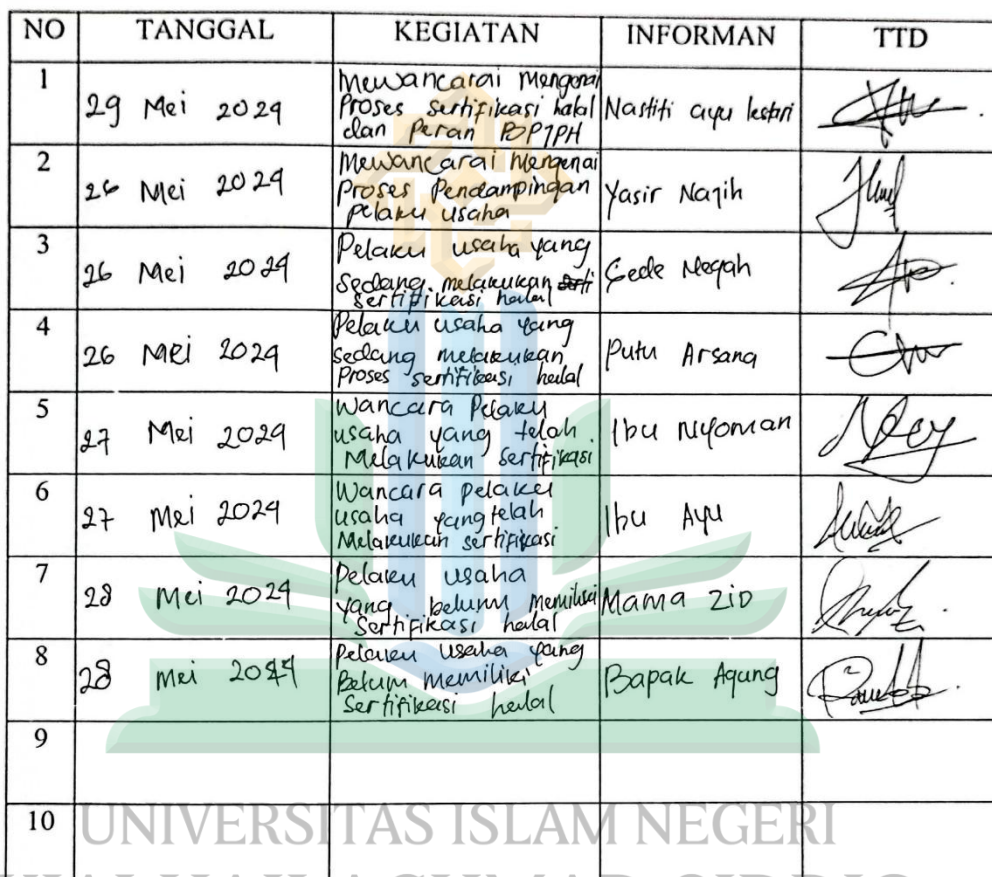 NO TANGGAL KEGIATAN INFORMAN TTD
1 29 Mei 2024 Mewancarai Mengenai
Proses sertifikasi halal
dan Peran Nastiti ayu lestari
2 26 Mei 2024 Mewancarai Mengenai
Proses Pendampingan
Pelaku usaha Yasir Naqih
3 26 Mei 2024 Pelaku usaha yang
Sedang melakukan
sertifikasi halal Gede Negah
4 26 Mei 2024 Pelaku usaha yang
sedang melakukan
Proses sertifikasi halal Putu Arsana
5 27 Mei 2024 Wancara Pelaku
usaha yang telah
Melakukan sertifikasi Ibu Nyoman
6 27 Mei 2024 Wancara pelaku
usaha yang telah
Melakukan sertifikasi Ibu Ayu
7 28 Mei 2024 Pelaku usaha
yang belum memiliki
Sertifikasi halal Mama Zio
8 28 Mei 2024 Pelaku usaha yang
Belum memiliki
Sertifikasi halal Bapak Agung
9
10
UNIVERSITAS ISLAM NEGERI